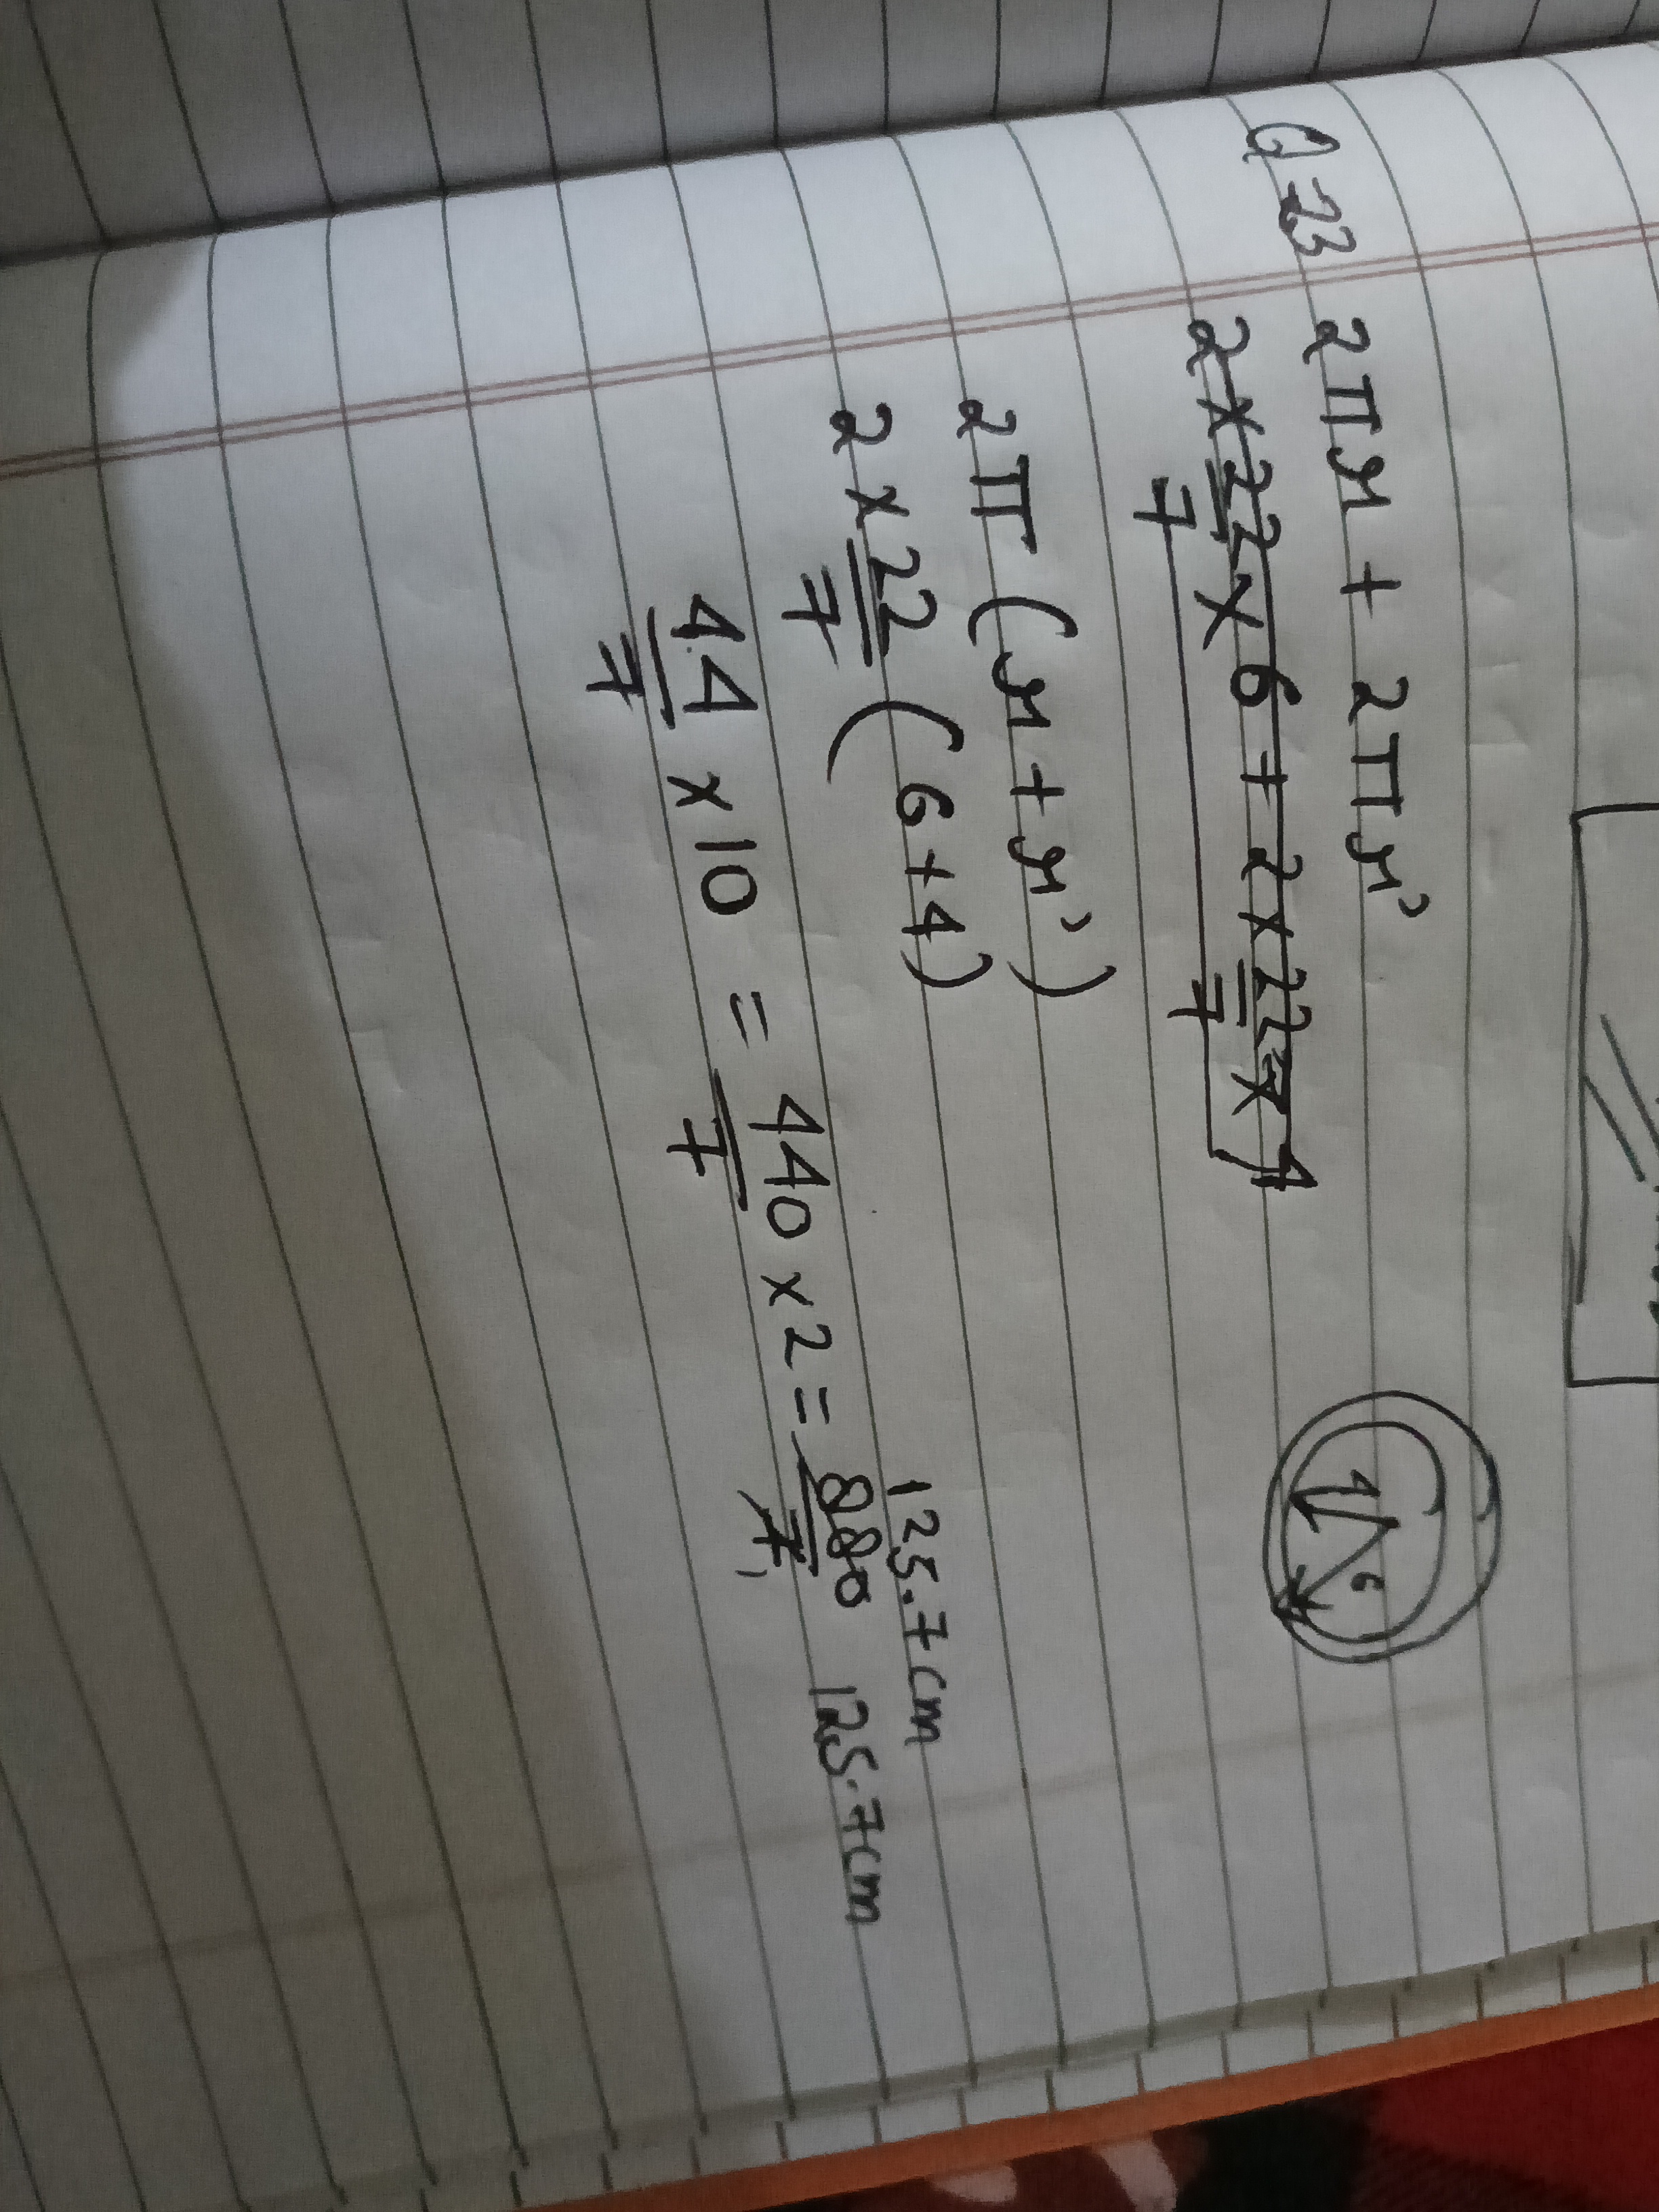 Q-23 2πr + 2πr'
2 × 22/7 × 6 + 2 × 22/7 × 4
2π (r + r')
2 × 22/7 (6+4)
44/7 × 10 = 440/7 × 2 = 880/7 125.7cm
125.7cm
4 6